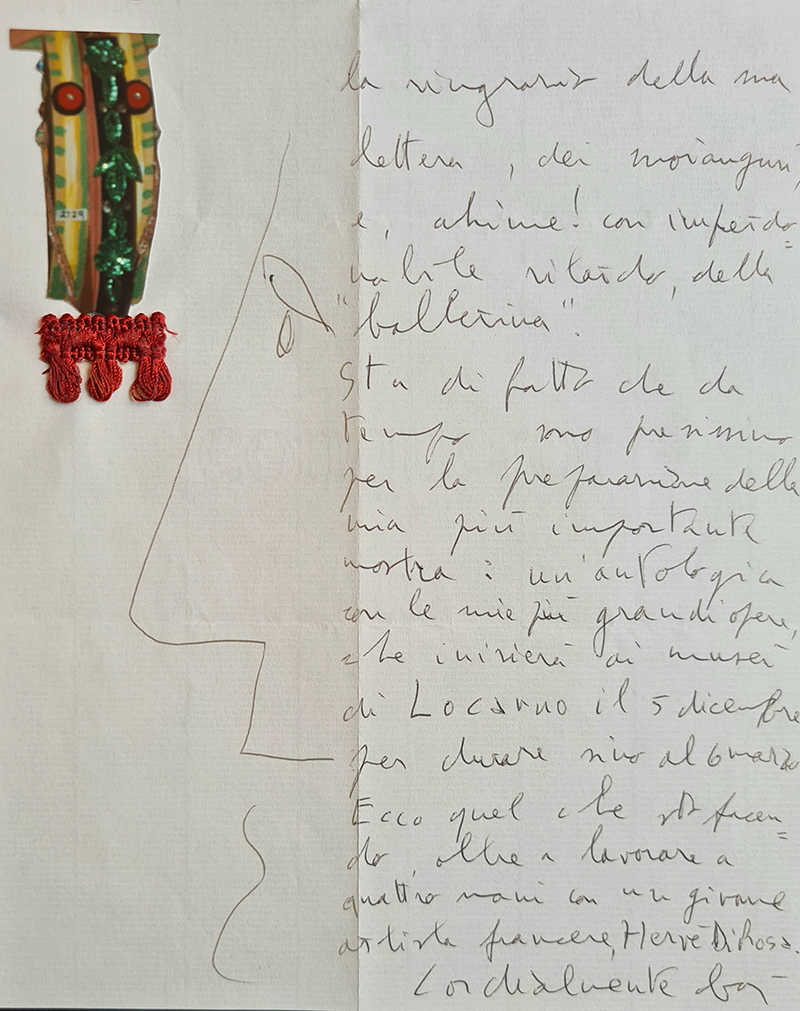 2729
la ringrazio della sua
lettera, dei suoi auguri,
e, ahimè! con imperdo=
nabile ritardo, della
"ballerina".
Sta di fatto che da
tempo sono presissimo
per la preparazione della
mia più importante
mostra: un'antologica
con le mie più grandi opere,
che inizierà ai musei
di Locarno il 5 dicembre
per durare sino al 6 marzo
Ecco quel che sto facen=
do, oltre a lavorare a
quattro mani con un giovane
artista francese, Hervé Di Rosa.
Cordialmente baj